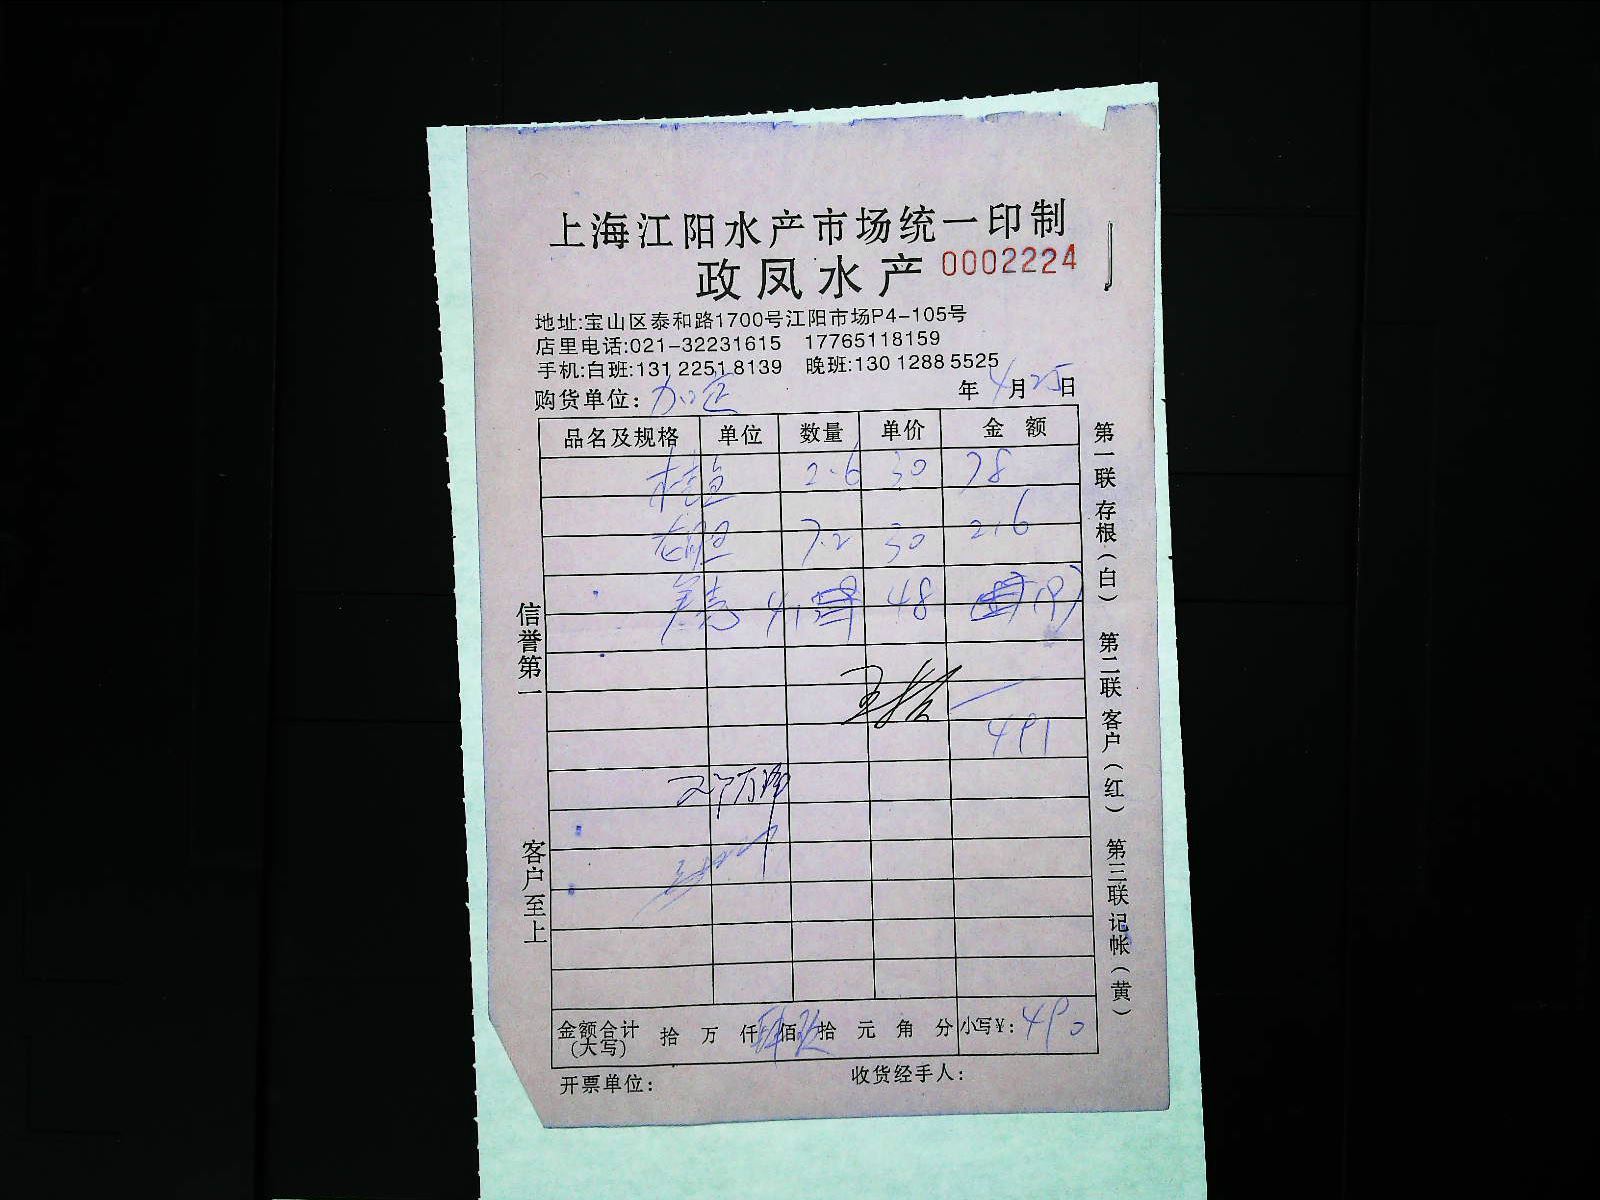 上海江阳水产市场统一印制
政凤水产 0002224
地址:宝山区泰和路1700号江阳市场P4-105号
店里电话:021-32231615 17765118159
手机:白班:131 2251 8139 晚班:130 1288 5525
购货单位: 加定 年 4月25日
品名及规格 单位 数量 单价 金额
桂鱼 2.6 30 78
7.2 30 216
4.1 48 197
491
金额合计(大写) 拾 万 仟 肆佰 玖拾 元 角 分 小写¥: 490
开票单位: 收货经手人:
信誉第一
客户至上
第一联存根(白) 第二联客户(红) 第三联记帐(黄)